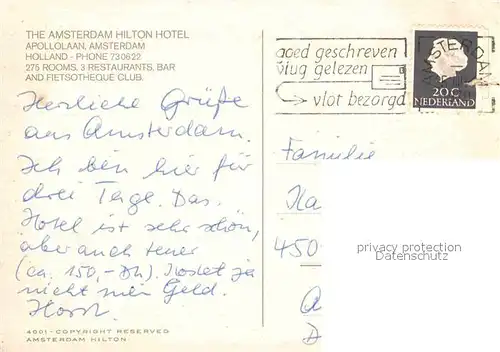 THE AMSTERDAM HILTON HOTEL
APOLLOLAAN, AMSTERDAM
HOLLAND - PHONE 730622
275 ROOMS, 3 RESTAURANTS, BAR
AND FIETSOTHEQUE CLUB.
Herzliche Grüße
aus Amsterdam.
Ich bin hier für
drei Tage. Das
Hotel ist sehr schön,
aber auch teuer
(ca. 150,- DM). Kostet ja
nicht mein Geld.
Horst.
4001 - COPYRIGHT RESERVED
AMSTERDAM HILTON
goed geschreven
vlug gelezen
vlot bezorgd
AMSTERDAM
20 C
NEDERLAND
Familie
Ha
450
privacy protection
Datenschutz